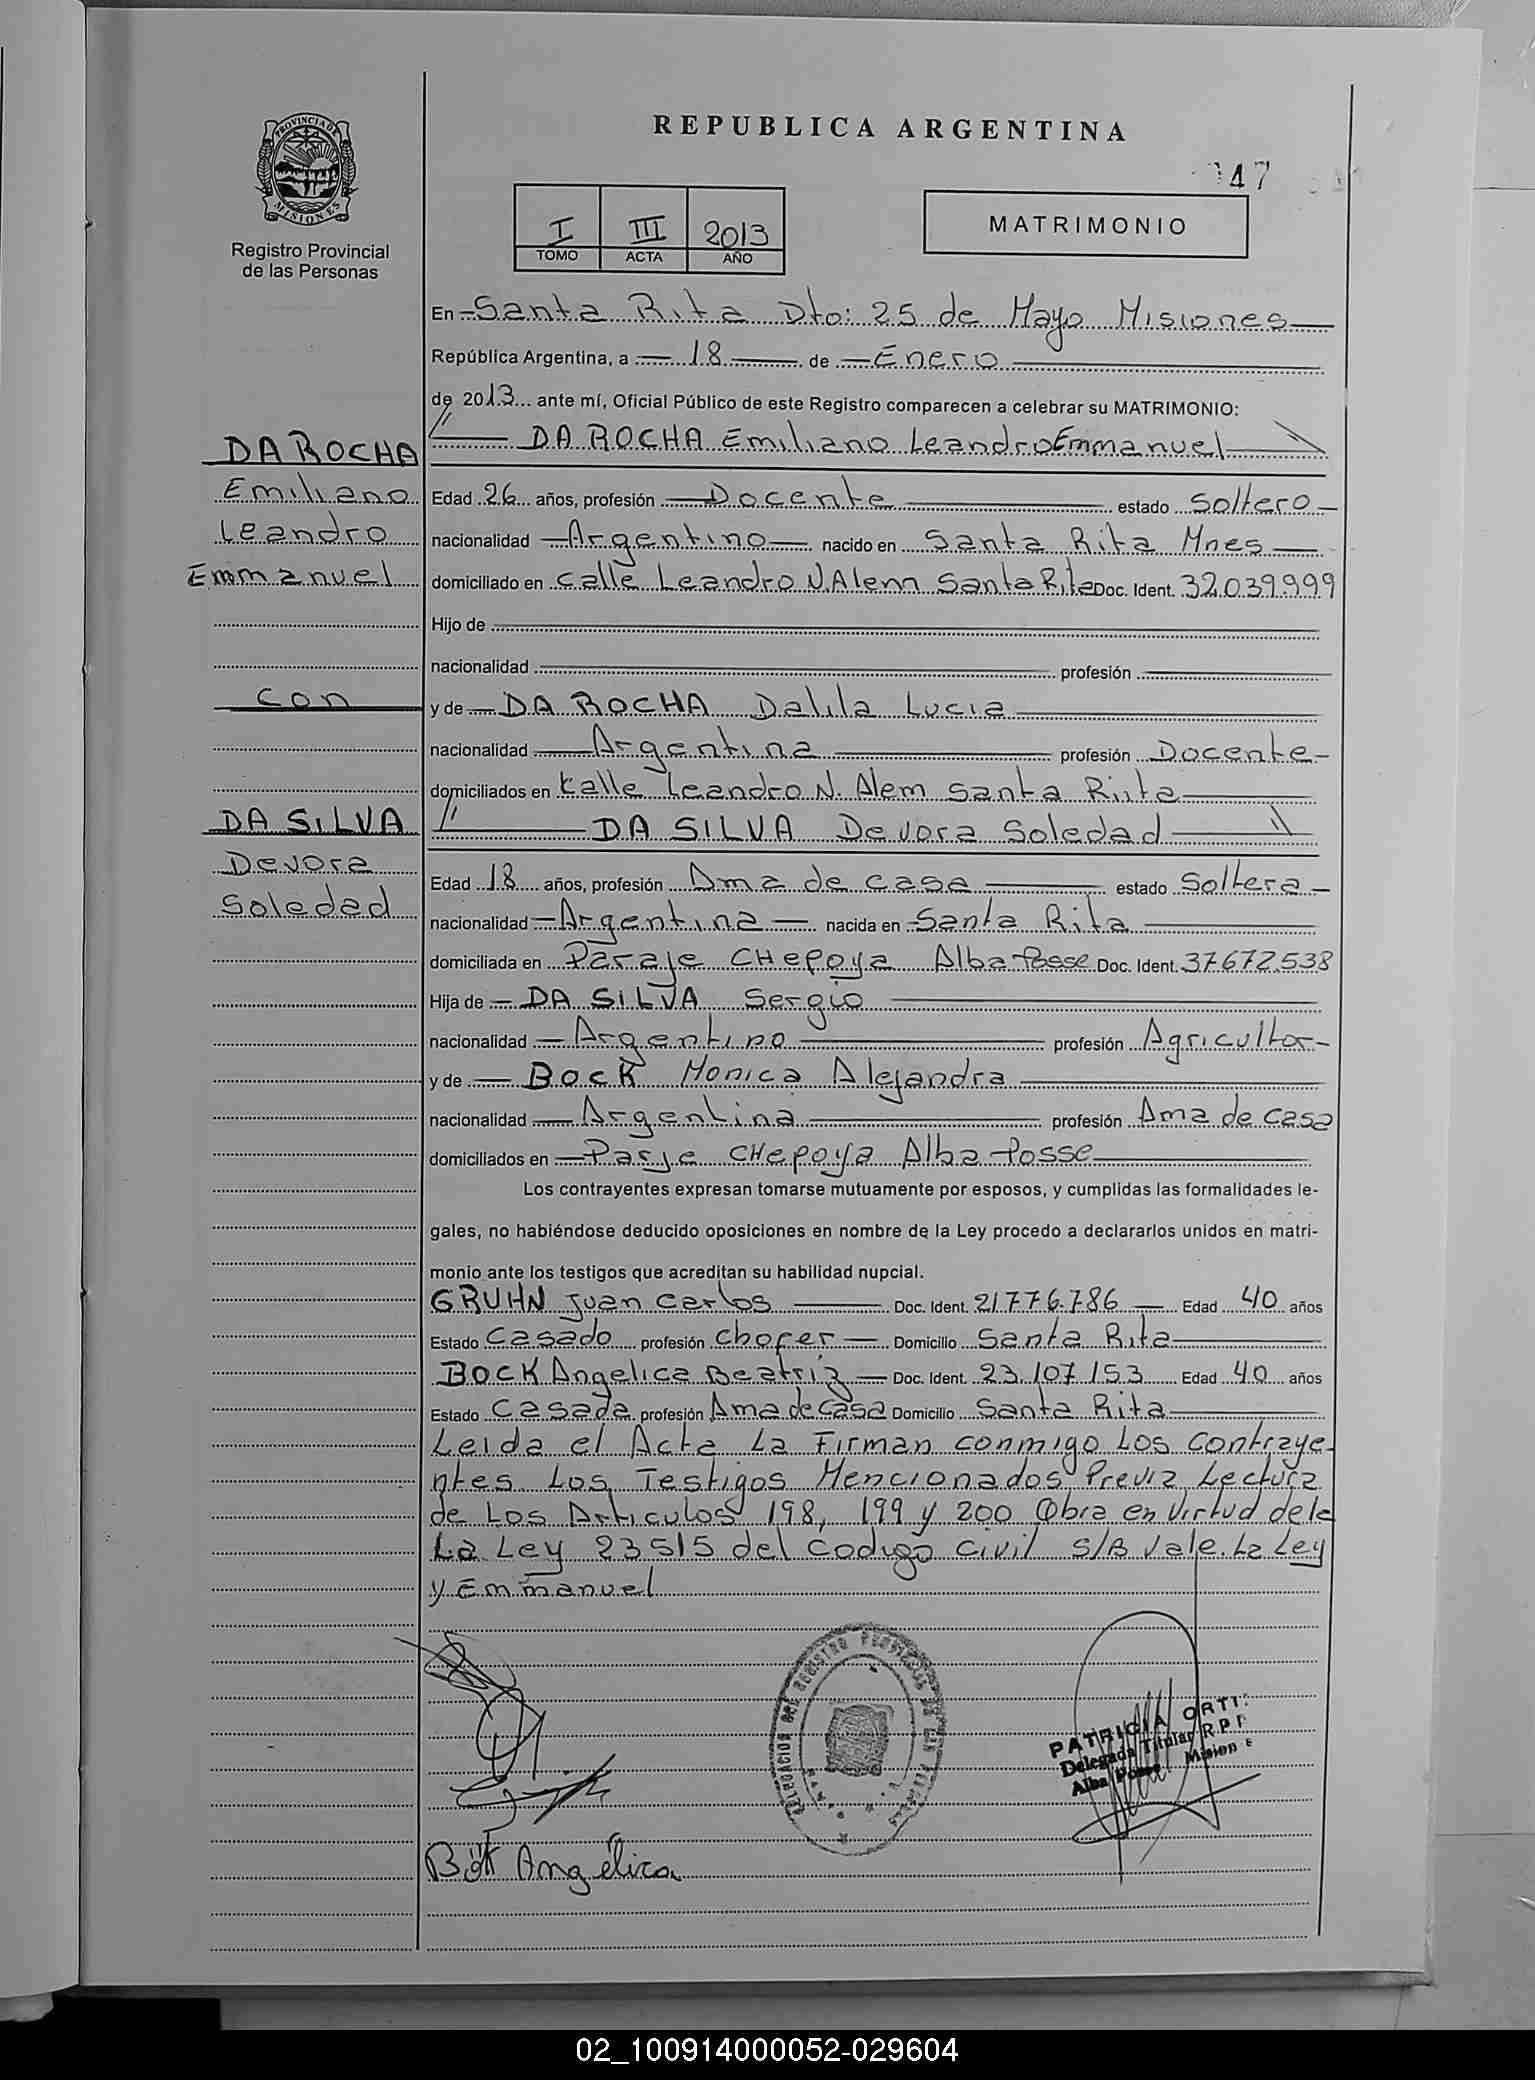 REPUBLICA ARGENTINA
47
PROVINCIA DE MISIONES
Registro Provincial
de las Personas
I III 2013
TOMO ACTA AÑO
MATRIMONIO
En Santa Rita Dto: 25 de Mayo Misiones
República Argentina, a 18 de Enero
de 2013 ante mí, Oficial Público de este Registro comparecen a celebrar su MATRIMONIO:
DA ROCHA Emiliano Leandro Emmanuel
DA ROCHA
Emiliano
Leandro
Emmanuel
con
DA SILVA
Devora
Soledad
Edad 26 años, profesión Docente estado Soltero
nacionalidad Argentino nacido en Santa Rita Mnes
domiciliado en calle Leandro N. Alem Santa Rita Doc. Ident. 32.039.999
Hijo de
nacionalidad profesión
y de DA ROCHA Dalila Lucia
nacionalidad Argentina profesión Docente
domiciliados en calle Leandro N. Alem Santa Riita
DA SILVA Devora Soledad
Edad 18 años, profesión Ama de casa estado Soltera
nacionalidad Argentina nacida en Santa Rita
domiciliada en Paraje CHepoya Alba Posse Doc. Ident. 37.672.538
Hija de DA SILVA Sergio
nacionalidad Argentino profesión Agricultor
y de BOCK Monica Alejandra
nacionalidad Argentina profesión Ama de casa
domiciliados en Parje CHepoya Alba Posse
Los contrayentes expresan tomarse mutuamente por esposos, y cumplidas las formalidades le-
gales, no habiéndose deducido oposiciones en nombre de la Ley procedo a declararlos unidos en matri-
monio ante los testigos que acreditan su habilidad nupcial.
GRUHN Juan Carlos Doc. Ident. 21.776.786 Edad 40 años
Estado Casado profesión chofer Domicilio Santa Rita
BOCK Angelica Beatriz Doc. Ident. 23.107.153 Edad 40 años
Estado Casada profesión Ama de Casa Domicilio Santa Rita
Leida el Acta La Firman conmigo Los Contraye-
ntes Los Testigos Mencionados Previa Lectura
de Los Articulos 198, 199 y 200 Obra en Virtud de la
La Ley 23515 del Codigo Civil S/B Vale. La Ley
y Emmanuel
DELEGACION DEL REGISTRO PROVINCIAL DE LAS PERSONAS
PATRICIA ORTI
Delegada Titular R.P.P
Alba Posse Mision
Bok Angélica
02_100914000052-029604